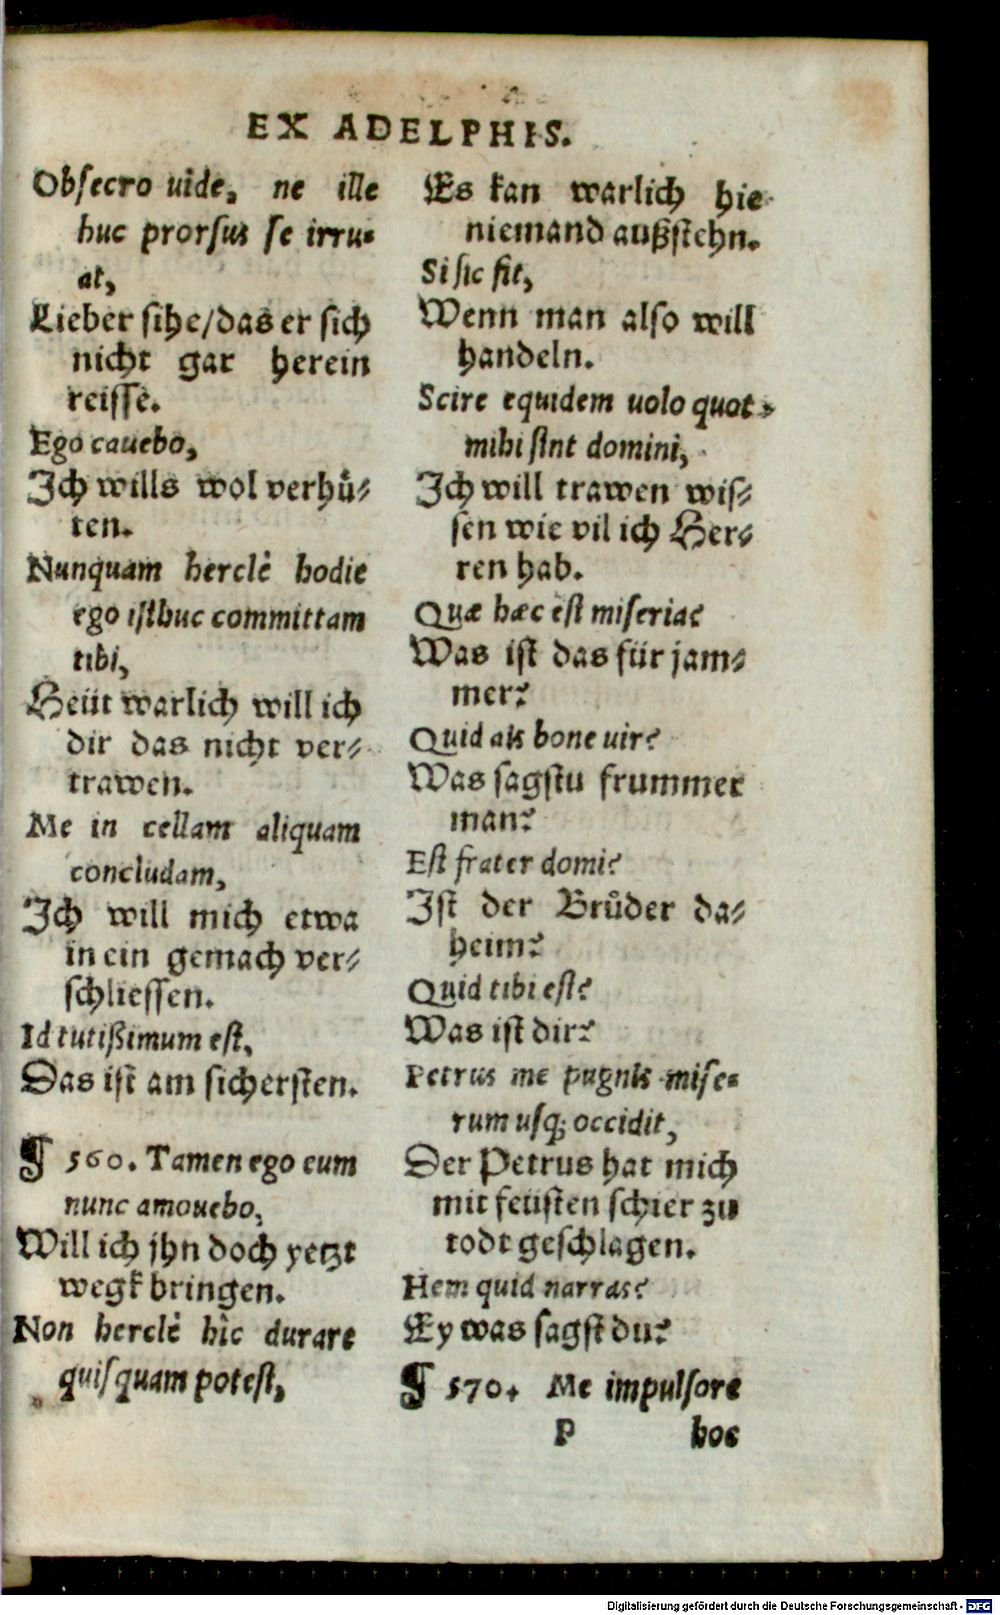 EX ADELPHIS.
Obſecro uide, ne ille
huc prorſus ſe irru-
at,
Lieber sihe/das er sich
nicht gar herein
reisse.
Ego cauebo,
Ich wills wol verhuͤ-
ten.
Nunquam herclè hodie
ego iſthuc committam
tibi,
Heüt warlich will ich
dir das nicht ver-
trawen.
Me in cellam aliquam
concludam,
Ich will mich etwa
in ein gemach ver-
schliessen.
Id tutißimum eſt,
Das ist am sichersten.
¶ 560. Tamen ego eum
nunc amouebo,
Will ich jhn doch yetzt
wegk bringen.
Non herclè hîc durare
quiſquam poteſt,
Es kan warlich hie
niemand außstehn.
Si ſic fit,
Wenn man also will
handeln.
Scire equidem uolo quot
mihi ſint domini,
Ich will trawen wis-
sen wie vil ich Her-
ren hab.
Quæ hæc eſt miſeria?
Was ist das für jam-
mer?
Quid ais bone uir?
Was sagstu frummer
man?
Eſt frater domi?
Ist der Bruͤder da-
heim?
Quid tibi eſt?
Was ist dir?
Petrus me pugnis miſe-
rum uſq; occidit,
Der Petrus hat mich
mit feüsten schier zu
todt geschlagen.
Hem quid narras?
Ey was sagst du?
¶ 570. Me impulſore
P hoc
Digitalisierung gefördert durch die Deutsche Forschungsgemeinschaft - DFG